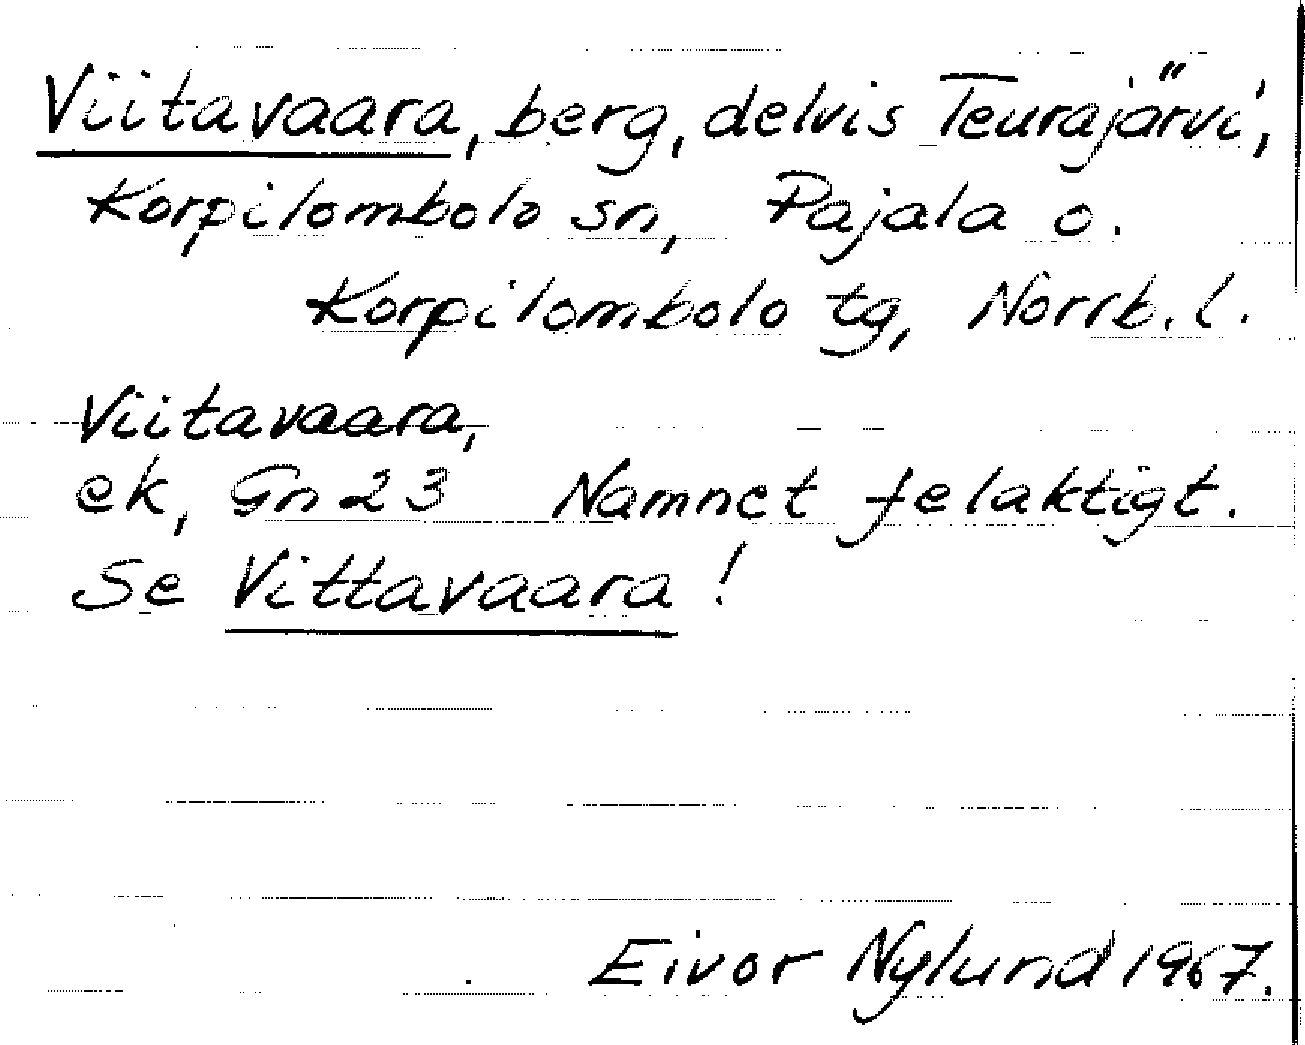 Viitavaara, berg, delvis Teurajärvi,
Korpilombolo sn, Pajala o.
Korpilombolo tg, Norrb. l.
Viitavaara,
ek, Gn 23 Namnet felaktigt.
Se Vittavaara!
Eivor Nylund 1967.